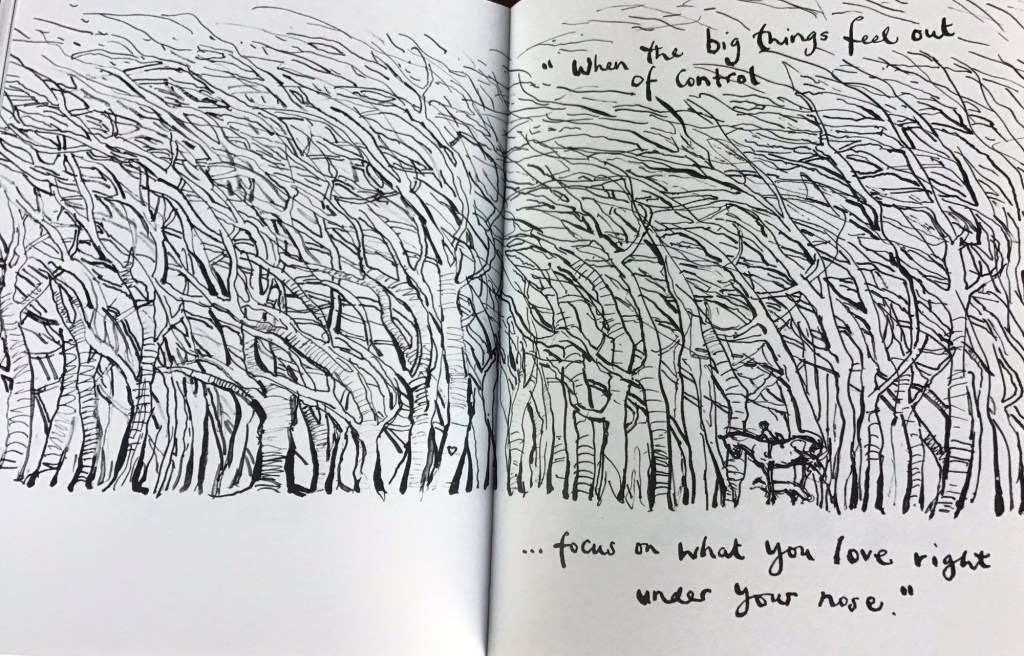 " When the big things feel out
of control
... focus on what you love right
under your nose."